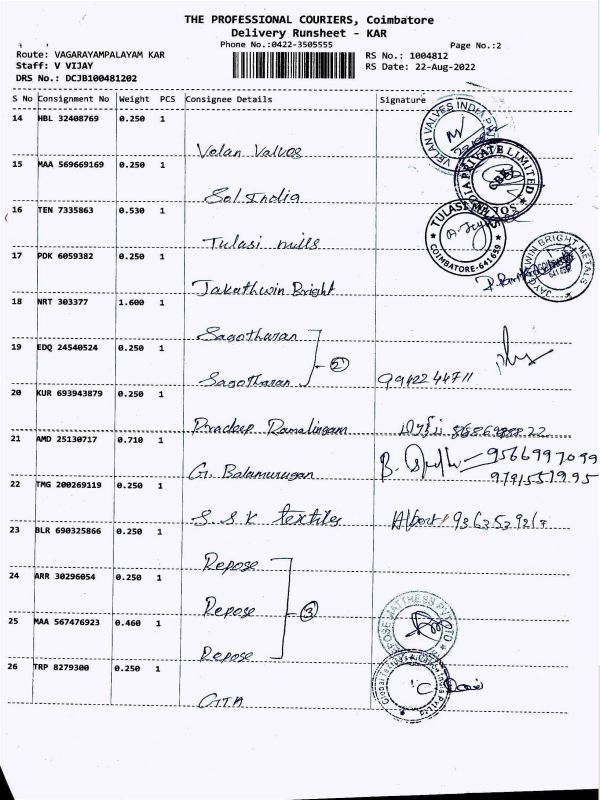 THE PROFESSIONAL COURIERS, Coimbatore
Delivery Runsheet - KAR
Phone No.:0422-3505555
Page No.:2
Route: VAGARAYAMPALAYAM KAR
RS No.: 1004812
Staff: V VIJAY
RS Date: 22-Aug-2022
DRS No.: DCJB100481202
S No Consignment No Weight PCS Consignee Details Signature
14 HBL 32408769 0.250 1
Velan Valves
VELAN VALVES INDIA PVT
15 MAA 569669169 0.250 1
Sol India
SOL INDIA PRIVATE LIMITED
CBE
16 TEN 7335863 0.530 1
Tulasi mills
TULASI MILLS
COIMBATORE-641659
17 PDK 6059382 0.250 1
Jakathwin Bright
WIN BRIGHT METALS
18 NRT 303377 1.600 1
Sagotharan
19 EDQ 24540524 0.250 1
Sagotharan
2
9942244711
20 KUR 693943879 0.250 1
Pradeep Ramalingam
21 AMD 25130717 0.710 1
G. Balamurugan
B.
9566997099
9791551995
22 TMG 200269119 0.250 1
S.S.K textiles
Albort
23 BLR 690325866 0.250 1
Repose
24 ARR 30296054 0.250 1
Repose
3
25 MAA 567476923 0.460 1
Repose
REPOSE MATTRESS PVT LTD
26 TRP 8279300 0.250 1
GTA
India Pvt Ltd